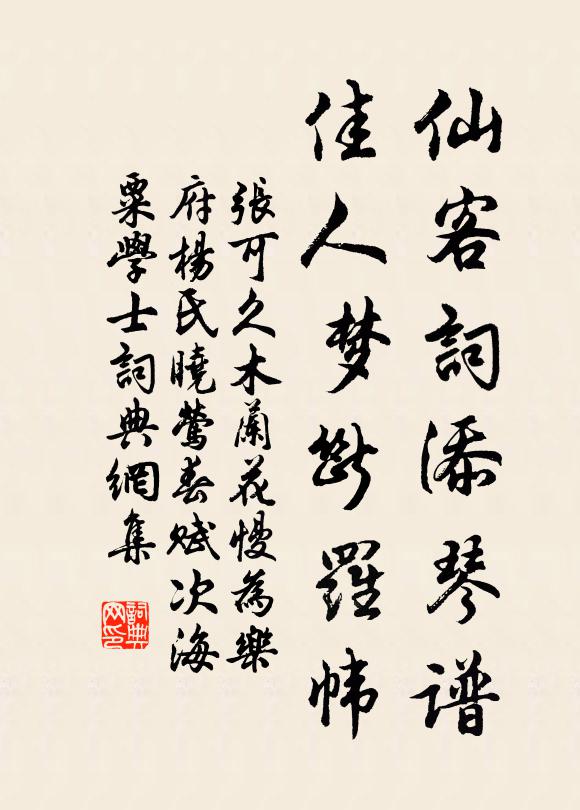 仙客詞添琴谱
佳人梦斷羅帏
張可久木蘭花慢為樂
府楊氏曉鶯春賦次海
粟學士詞典網集
詞典网印